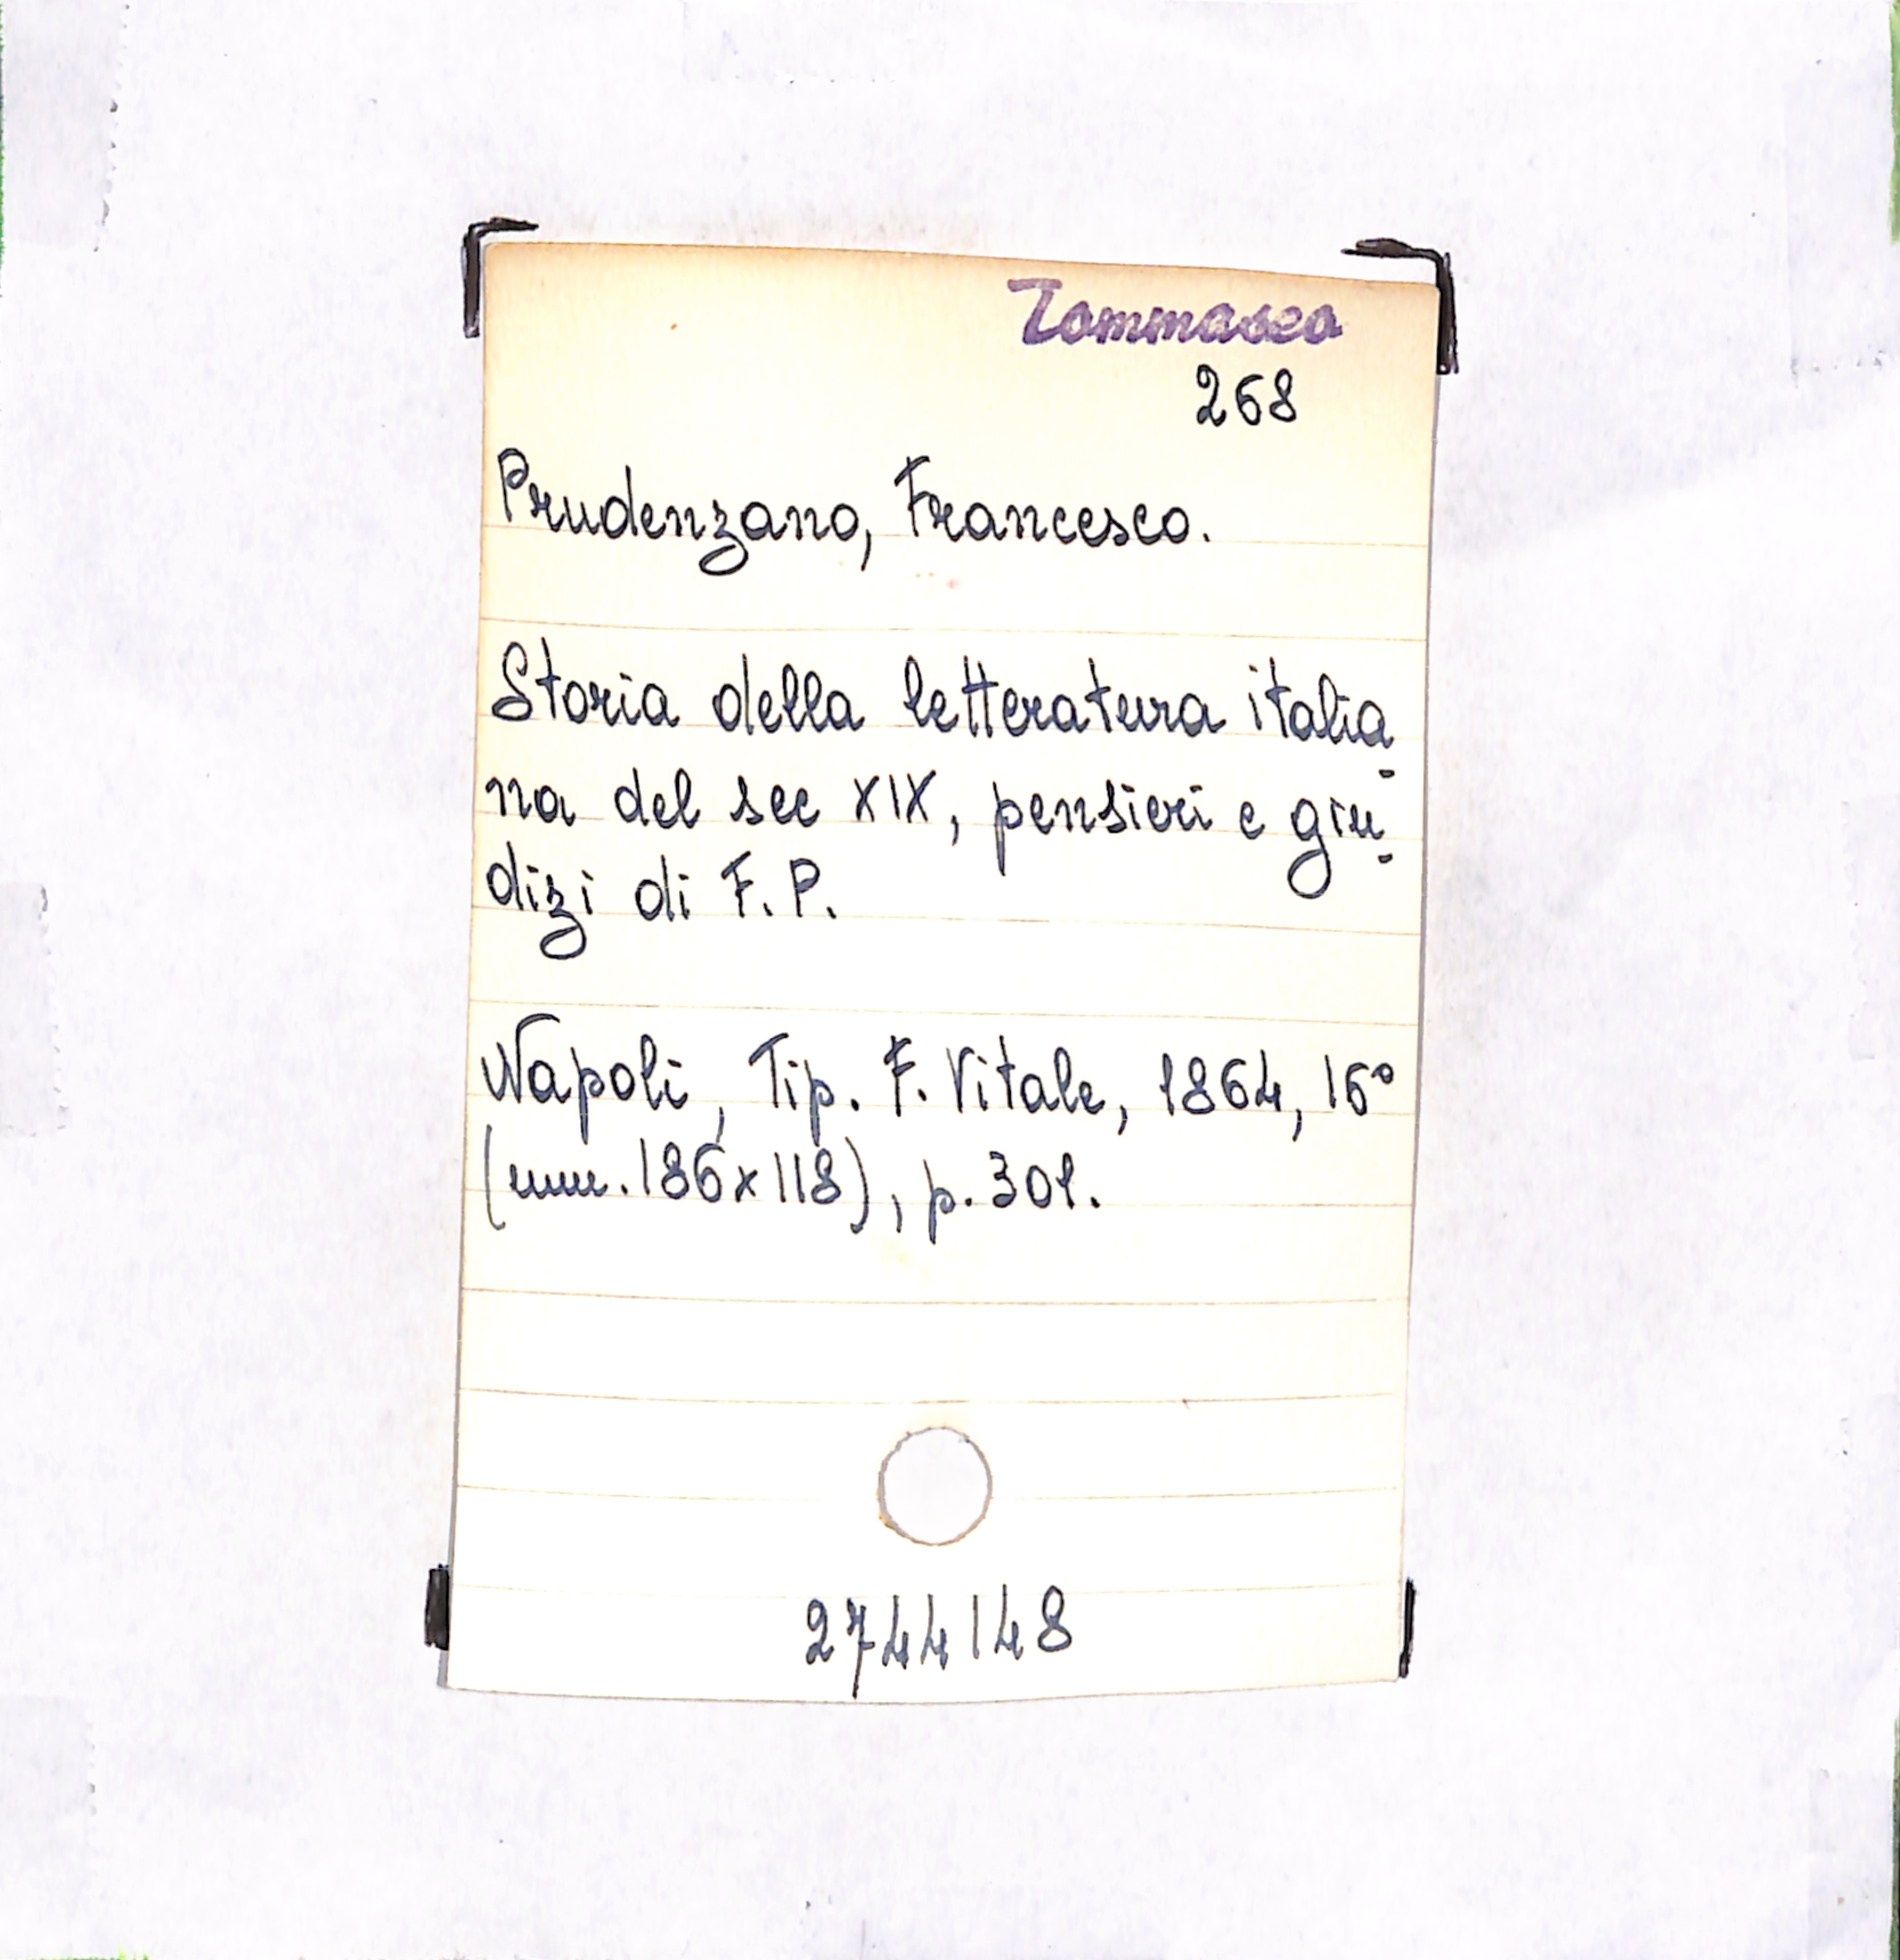 Tommaseo
268
Prudenzano, Francesco.
Storia della letteratura italia-
na del sec XIX, pensieri e giu-
dizi di F. P.
Napoli, Tip. F. Vitale, 1864, 16°
(mm. 186x118), p. 301.
2744148